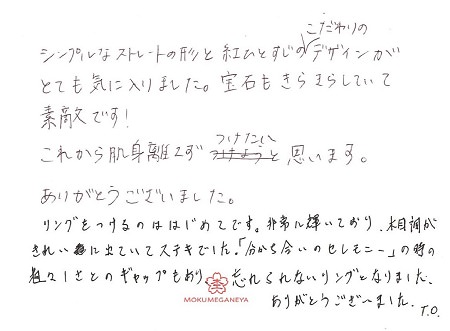 シンプルなストレートの形と紅ひとすじのこだわりのデザインが
とても気に入りました。宝石もきらきらしていて
素敵です!
これから肌身離さず つけたいと思います。
ありがとうございました。
リングをつけるのははじめてです。非常に輝いており、木目調が
きれいに出ていてステキでした。「分かち合いのセレモニー」の時の
粗々しさとのギャップもあり、忘れられないリングとなりました。
ありがとうございました。 T.O.
MOKUMEGANEYA